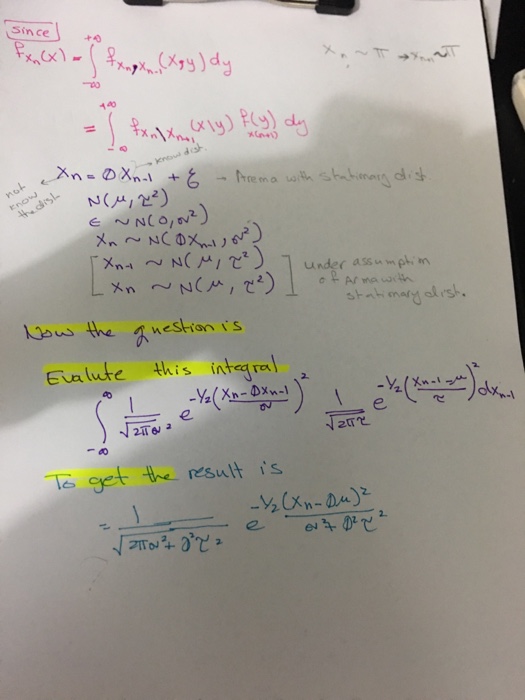 since
f_{X_n}(x) = ∫_{-∞}^{+∞} f_{X_n, X_{n-1}}(x,y) dy
X_n ~ π → X_{n+1} ~ π
= ∫_{-∞}^{+∞} f_{X_n|X_{n-1}}(x|y) f_{X(n-1)}(y) dy
→ know dist.
not know the dist ← X_n = Ø X_{n-1} + ε → Arema with stationary dist.
N(μ, τ²)
ε ~ N(0, σ²)
X_n ~ N(Ø X_{n-1}, σ²)
[ X_{n-1} ~ N(μ, τ²)
X_n ~ N(μ, τ²) ] under assumption of Arma with stationary dist.
Now the question is
Evalute this integral
∫_{-∞}^{∞} 1/√(2πσ²) e^{-1/2((X_n - ØX_{n-1})/σ)²} 1/√(2πτ) e^{-1/2((X_{n-1} - μ)/τ)²} dx_{n-1}
To get the result is
= 1/√(2πσ² + Ø²τ²) e^{-1/2 (X_n - Øμ)²/(σ² + Ø²τ²)}